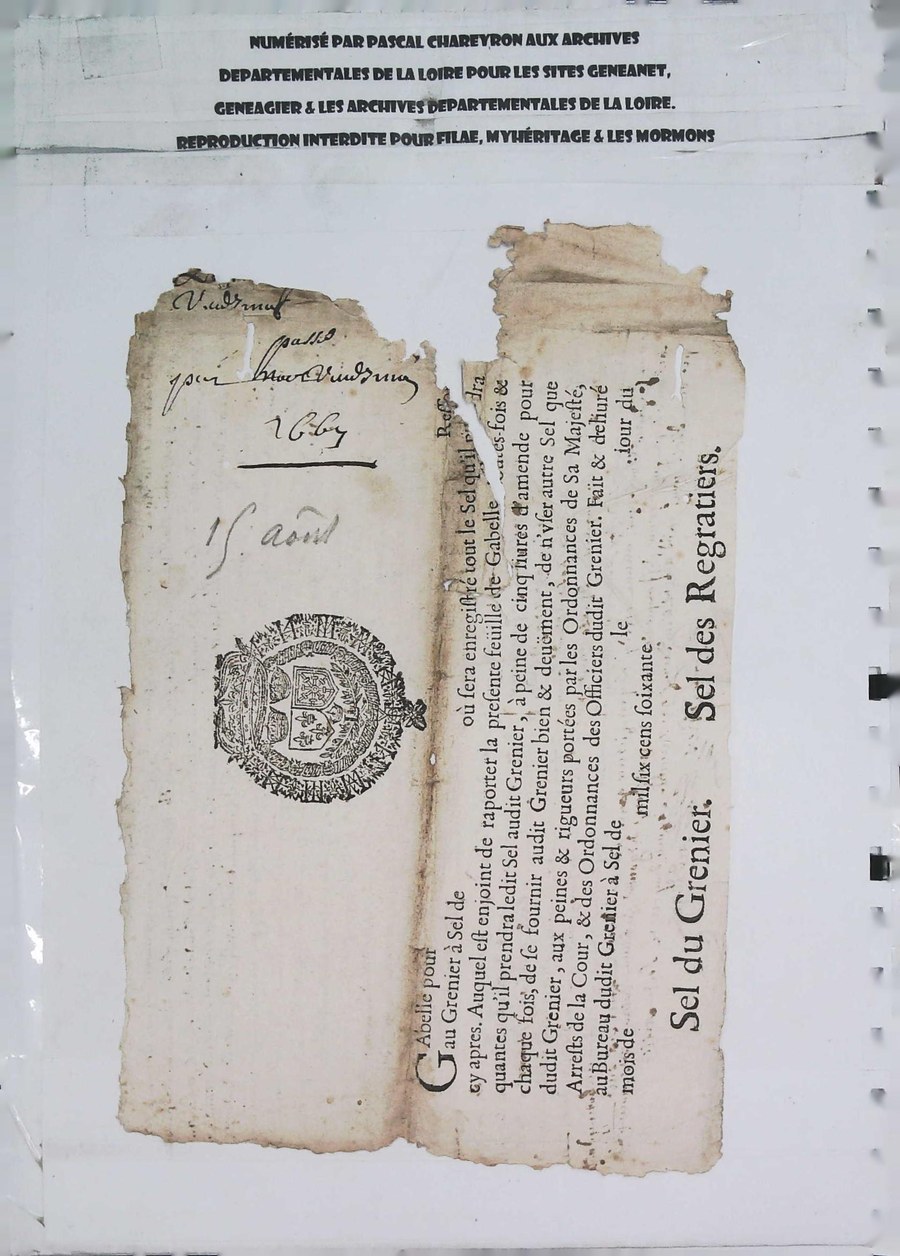 NUMÉRISÉ PAR PASCAL CHAREYRON AUX ARCHIVES
DEPARTEMENTALES DE LA LOIRE POUR LES SITES GENEANET,
GENEAGIER & LES ARCHIVES DEPARTEMENTALES DE LA LOIRE.
REPRODUCTION INTERDITE POUR FILAE, MYHÉRITAGE & LES MORMONS
passé
par
15 août
GAbelle pour
au Grenier à Sel de où ſera enregiſtré tout le Sel qu'il
cy apres. Auquel eſt enjoint de raporter la preſente feüille de Gabelle fois &
quantes qu'il prendra ledit Sel audit Grenier, à peine de cinq liures d'amende pour
chaque fois, de ſe fournir audit Grenier bien & deuëment, de n'vſer autre Sel que
dudit Grenier, aux peines & rigueurs portées par les Ordonnances de Sa Majeſté,
Arreſts de la Cour, & des Ordonnances des Officiers dudit Grenier. Fait & deliuré
au Bureau dudit Grenier à Sel de le iour du
mois de mil ſix cens ſoixante
Sel du Grenier. Sel des Regratiers.